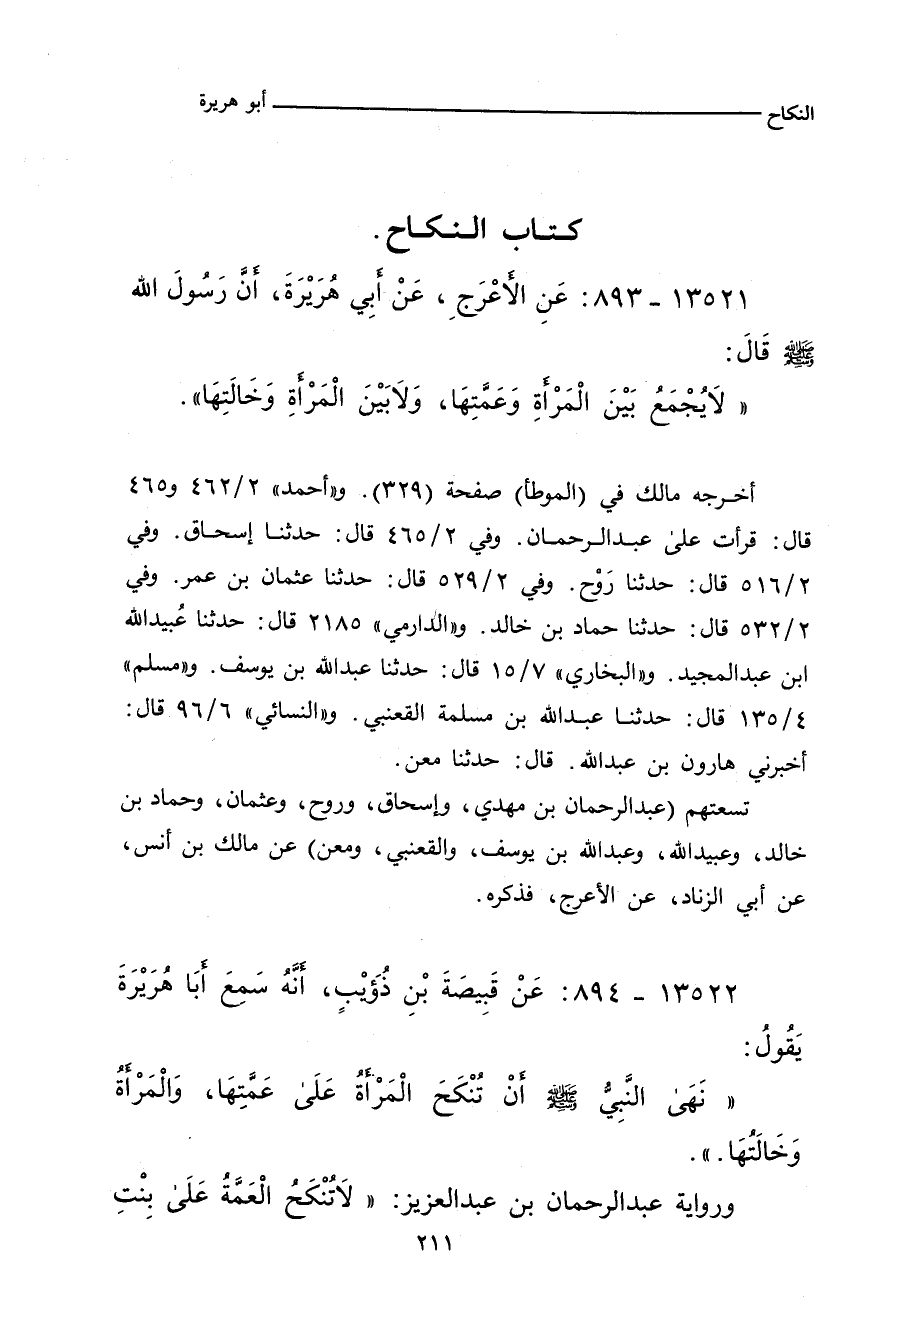 النكاح ــــــــــــ أبو هريرة
كتاب النكاح.
١٣٥٢١ - ٨٩٣: عَنِ الأَعْرَجِ، عَنْ أَبِي هُرَيْرَةَ، أَنَّ رَسُولَ الله
ﷺ قَالَ:
« لَايُجْمَعُ بَيْنَ الْمَرْأَةِ وَعَمَّتِهَا، وَلَابَيْنَ الْمَرْأَةِ وَخَالَتِهَا».
أخرجه مالك في (الموطأ) صفحة (٣٢٩). و«أحمد» ٤٦٢/٢ و٤٦٥
قال: قرأت على عبدالرحمان. وفي ٤٦٥/٢ قال: حدثنا إسحاق. وفي
٥١٦/٢ قال: حدثنا رَوْح. وفي ٥٢٩/٢ قال: حدثنا عثمان بن عمر. وفي
٥٣٢/٢ قال: حدثنا حماد بن خالد. و«الدارمي» ٢١٨٥ قال: حدثنا عُبيدالله
ابن عبدالمجيد. و«البخاري» ١٥/٧ قال: حدثنا عبدالله بن يوسف. و«مسلم»
١٣٥/٤ قال: حدثنا عبدالله بن مسلمة القعنبي. و«النسائي» ٩٦/٦ قال:
أخبرني هارون بن عبدالله. قال: حدثنا معن.
تسعتهم (عبدالرحمان بن مهدي، وإسحاق، وروح، وعثمان، وحماد بن
خالد، وعبيدالله، وعبدالله بن يوسف، والقعنبي، ومعن) عن مالك بن أنس،
عن أبي الزناد، عن الأعرج، فذكره.
١٣٥٢٢ - ٨٩٤: عَنْ قَبِيصَةَ بْنِ ذُؤَيْبٍ، أَنَّهُ سَمِعَ أَبَا هُرَيْرَةَ
يَقُولُ:
« نَهَىٰ النَّبِيُّ ﷺ أَنْ تُنْكَحَ الْمَرْأَةُ عَلَىٰ عَمَّتِهَا، وَالْمَرْأَةُ
وَخَالَتُهَا.».
ورواية عبدالرحمان بن عبدالعزيز: « لَاتُنْكَحُ الْعَمَّةُ عَلَىٰ بِنْتِ
٢١١